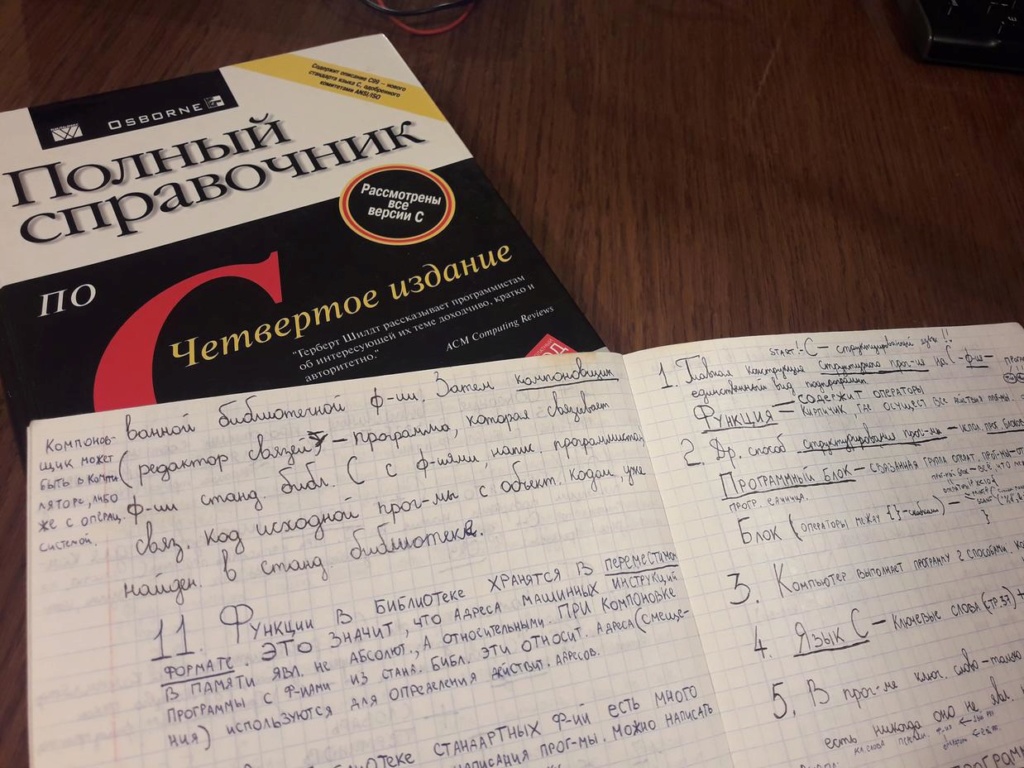 Содержит описание C99 — нового
стандарта языка C, одобренного
комитетами ANSI/ISO
OSBORNE
Полный
справочник
Рассмотрены
все
версии C
по
C
Четвертое издание
"Герберт Шилдт рассказывает программистам
об интересующей их теме доходчиво, кратко и
авторитетно."
ACM Computing Reviews
Компонов-
щик может
быть в компи
ляторе, либо
же с операц.
системой.
ванной библиотечной ф-ии. Затем компоновщик
(редактор связей) – программа, которая связывает
ф-ии станд. библ. C с ф-иями, напис. программистом,
связ. код исходной прог-мы с объект. кодом, уже
найден. в станд библиотеке.
11. Функции в библиотеке хранятся в переместимом
формате. Это значит, что адреса машинных инструкций
в памяти явл. не абсолют., а относительными. При компоновке
программы с ф-иями из станд. библ. эти относит. адреса (смеще-
ния) используются для определения действит. адресов.
блиотеке стандартных ф-ий есть много
написания прог-мы. Можно написать
START! C – структурированный язык!!
1. Главная конструкция структурного прог-ия на C – ф-ия –
единственный вид подпрограмм
Функция = содержит операторы
кирпичик, где осущест все действия
2. Др. способ структурирования прог-мы – испол. прог. блоков
Программный блок – связанная группа операт.
прогр. единица.
Блок (операторы между {}) –
3. Компьютер выполнает программу 2 способами
4. Язык C – ключевые слова (стр. 57) +
5. В прог-ме ключ. слово –
есть никогда оно не явл.